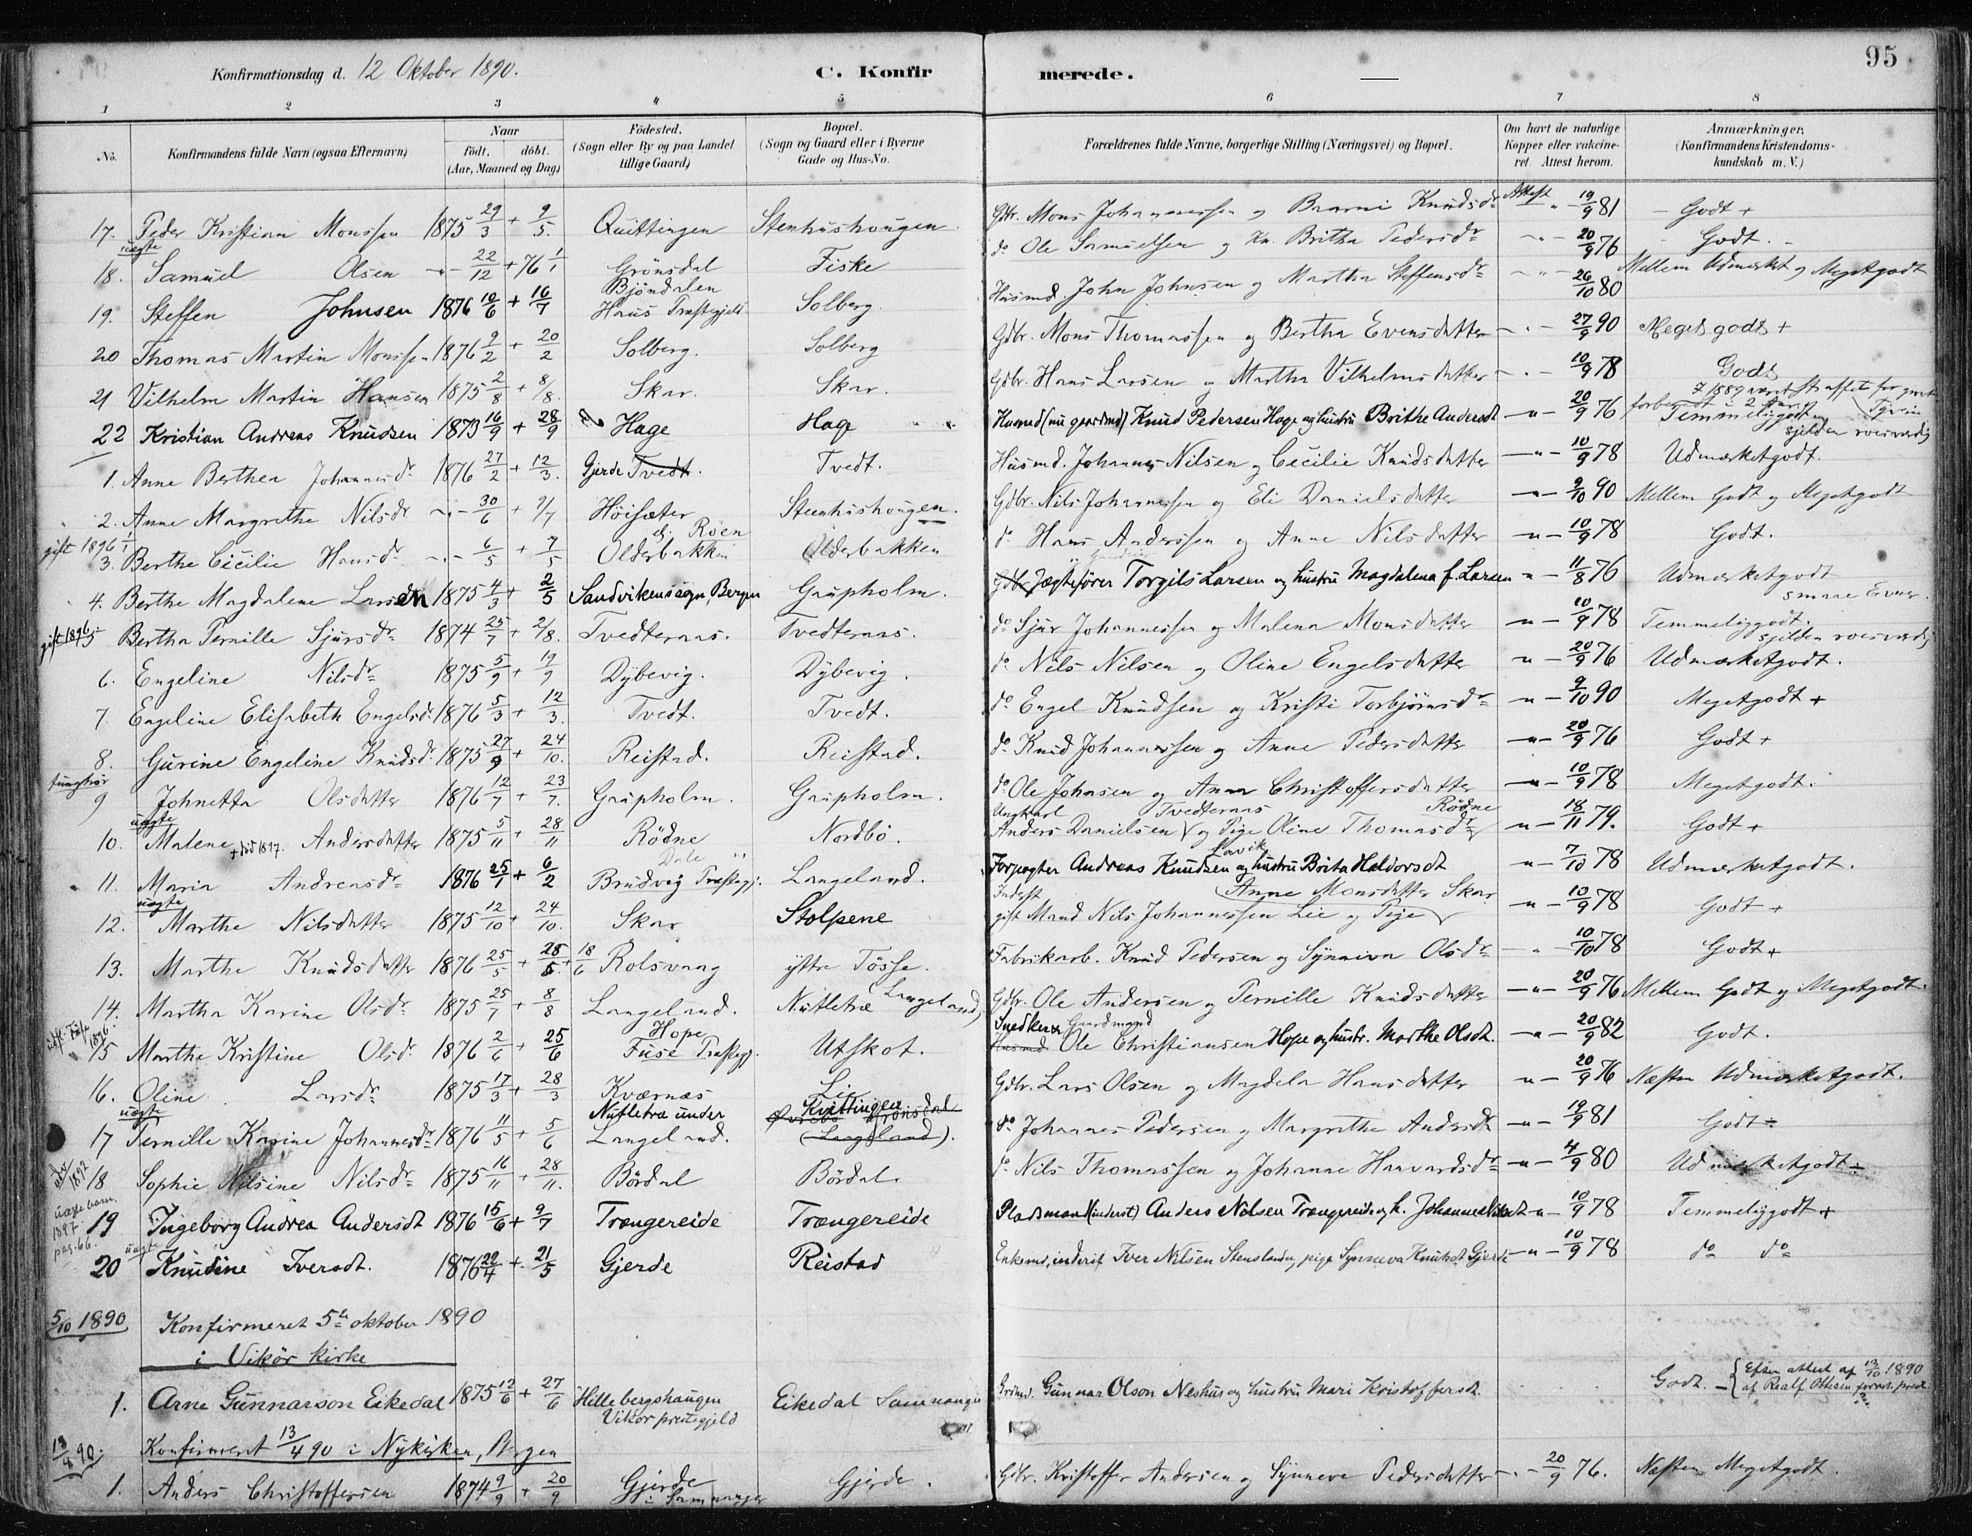 95
Konfirmationsdag d. 12 Oktober 1890. C. Konfirmerede.
1 2 3 4 5 6 7 8
No. Konfirmandens fulde Navn (ogsaa Efternavn) Naar født, døbt. (Aar, Maaned og Dag) Fødested. (Sogn eller By og paa Landet tillige Gaard) Bopæl. (Sogn og Gaard eller i Byerne Gade og Hus-No. Forældrenes fulde Navne, borgerlige Stilling (Næringsvei) og Bopæl. Om havt de naturlige Kopper eller vaccineret. Attest herom. Anmærkninger. (Konfirmandens Kristendomskundskab m. V.)
17. Peder Kristian Monssen 1875 29/3 + 9/5. Quittingen Stenhushougen. Gdbr. Mons Johannessen og Brami Knudsdr Attest 19/9 81 Godt +
18. uægte Samuel Olsen -"- 22/12 + 76 1/1 Grönsdal Fiske do Ole Samuelsen og Kn. Britha Pedersdr -"- 20/9 76 Godt.
19. Steffen Johnsen 1876 10/6 + 16/7 Bjöndalen Haus Præstegjeld Solberg. Husmd John Johnsen og Martha Steffensdr -"- 26/10 80 Mellem Udmærket og Megetgodt
20 Thomas Martin Monssen 1876 9/2 + 20/2 Solberg. Solberg Gdbr. Mons Thomassen og Bertha Evensdatter -"- 27/9 90 Megetgodt +
21 Vilhelm Martin Hansen 1875 2/8 + 8/8. Skar. Skar. Gdbr. Hans Larsen og Martha Vilhelmsdatter -"- 10/9 78 Godt
22 Kristian Andreas Knudsen 1873 16/9 + 28/9 Hage Hage Husmd (nu gaardmd) Knud Pedersen Hage og hustru Brithe Andersdt -"- 20/9 76 Temmeliggodt sjelden roesværdig
1. Anne Berthea Johannesdr 1876 27/2 + 12/3. Gjerde Tvedt. Tvedt. Husmd. Johannes Nilsen og Cecilie Knudsdatter -"- 10/9 78 Udmærketgodt.
2. Anne Margrethe Nilsdr -"- 30/6 + 9/7 Höisæter Steenhushougen. Gdbr. Nils Johannessen og Eli Danielsdatter -"- 9/10 90 Mellem Godt og Megetgodt
gift 1896 3. Berthe Cecilie Hansdr -"- 6/5 + 7/5 Olderbakken Roen Olderbakken do Hans Anderssen og Anne Nilsdatter -"- 10/9 78 Godt.
4. Berthe Magdalene Larsen 1875 4/3 + 2/5 Sandvikens sogn, Bergen Grupholm. Gdbr Jægtefører Torgils Larsen og hustru Magdalena f. Larsen -"- 11/8 76 Udmærketgodt
gift 1896 5 Bertha Pernille Sjursdr 1874 25/7 + 2/8. Tvedternas. Tvedternas. do Sjur Johannessen og Malena Monsdatter -"- 10/9 78 Temmeliggodt. smaae Evner sjelden roesværdig
6. Engeline Nilsdr 1875 5/9 + 19/9 Dybevig. Dybevig. do Nils Nilsen og Oline Engelsdatter -"- 20/9 76 Udmærketgodt.
7. Engeline Elisabeth Engelsdr 1876 5/3 + 12/3. Tvedt. Tvedt. do Engel Knudsen og Kristi Torbjörnsdr -"- 9/10 90 Megetgodt +
8. Gurine Engeline Knudsdr 1875 27/9 + 24/10. Reistad. Reistad. do Knud Johannessen og Anne Pedersdatter -"- 20/9 76 Godt +
tunghør 9 Johnetta Olsdatter 1876 12/7 + 23/7. Grupholm. Grupholm. do Ole Johnsen og Anna Christoffersdatter -"- 10/9 78 Megetgodt.
10. uægte Malene Andersdatter + död 1897. 1875 5/11 + 28/11 Rödne Nordbö. Ungkarl Anders Danielsen Tvedternas og Pige Oline Thomasdr Rödne -"- 18/11 79. Godt +
11. Maria Andreasdr 1876 25/1 + 6/2 Dale Brudvig Præstegj. Langeland. Forpagter Andreas Knudsen Lavik og hustru Brita Haldorsdt -"- 7/10 78 Udmærketgodt.
12. uægte Marthe Nilsdatter 1875 12/10 + 24/10. Skar Stolpene Inderst gift Mand Nils Johannessen Lie og Pige Anne Monsdatter Skar -"- 10/9 78 Godt +
13. Marthe Knudsdatter 1876 25/5 + 28/5 + 18/6 Rolsvaag ytre Tösse. Fabrikarb. Knud Pedersen og Synneva Olsdr " 10/10 78 Godt +
14. Martha Karine Olsdr 1875 25/7 + 8/8 Langeland. Nutletræ Langeland, Gdbr. Ole Andersen og Pernille Knudsdatter -"- 20/9 76 Mellem Godt og Megetgodt.
15 Marthe Kristine Olsdr 1876 2/6 + 25/6 Hope Fuse Præstegj. Utskot. Snedker Gaardmand Husmd Ole Christiansen Hope og hustr. Marthe Olsdt. -"- 20/9 82 Godt.
16. Oline Larsdr 1875 17/3 + 28/3 Kværnæs Lie Gdbr. Lars Olsen og Magdela Hansdatter -"- 20/9 76 Næsten Udmærketgodt.
17 uægte Pernille Karine Johannesdr 1876 11/5 + 5/6 Nutletræ under Langeland. Kvittingen Grönsdal (Langeland). do Johannes Pedersen og Margrethe Andersdr -"- 19/9 81 Godt
18 Sophie Nilsine Nilsdr 1875 16/11 + 28/11. Bördal Bördal. do Nils Thomassen og Johanne Haavardsdr -"- 4/9 80 Udmærketgodt
uægte barn. 1897 pag. 66. 19 Ingeborg Andrea Andersdt 1876 15/6 + 9/7 Trængereide Trængereide Pladsmand (inderst) Anders Nilsen Trængereide og h. Johanne Nilsdt -"- 10/9 78 Temmeliggodt +
20 uægte Knudine Iversdt. 1876 22/4 + 21/5 Gjerde Reistad Enkemd, inderst Iver Nilsen Stensland og pige Synneva Knutsdt Gjerde -"- 10/9 78 do do
5/10 1890 Konfirmeret 5te oktober 1890
i Vikör kirke
1. Arne Gunnarson Eikedal 1875 12/6 + 27/6 Hillebergshaugen Vikör prestegjeld Eikedal Samnanger Brugsmd. Gunnar Olson Neshus og hustru Mari Kristoffersdt. Godt. - {Efter attest af 13/10 1890
13/4 90. Konfirmeret 13/4 90 i Nykirken, Bergen
1. Anders Christoffersen 1874 9/9 + 20/9 Gjerde i Samnanger Gjerde. Gdbr. Kristoffer Andersen og Synneve Pedersdatter -"- 20/9 76. Næsten Megetgodt.